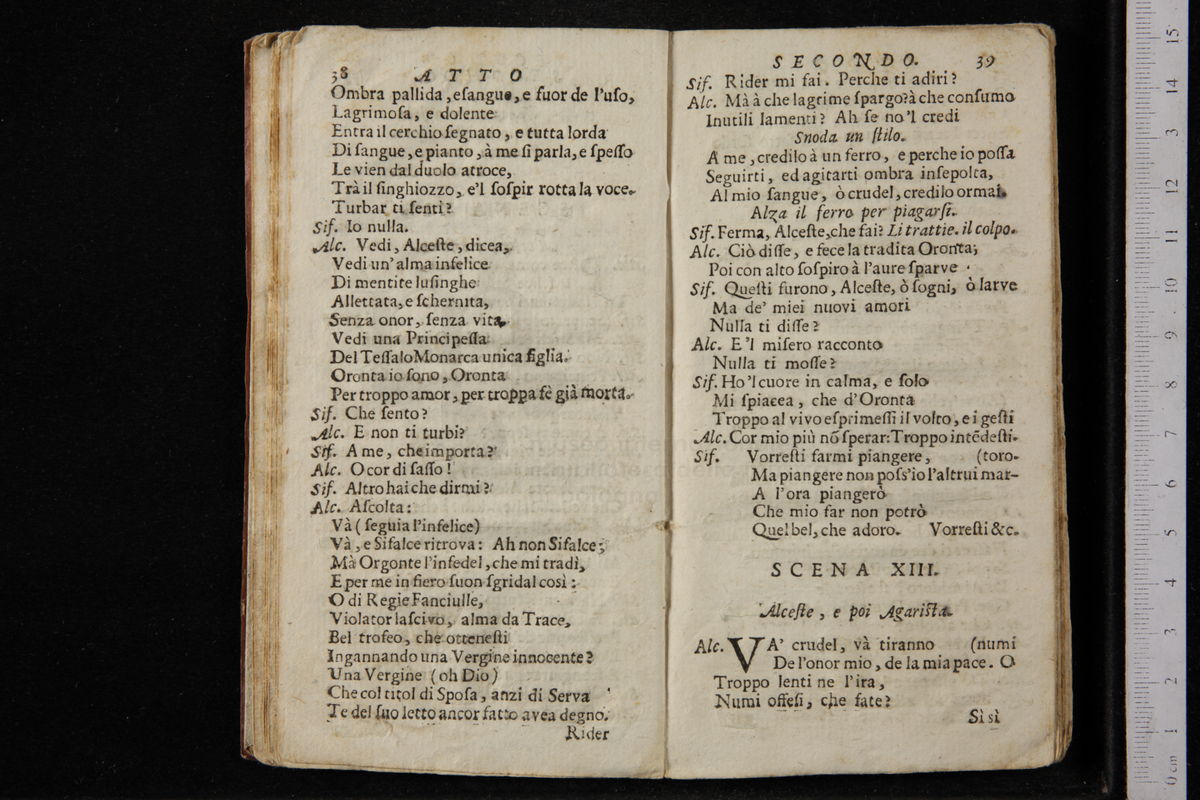 38 ATTO
Ombra pallida, esangue, e fuor de l'uſo,
Lagrimoſa, e dolente
Entra il cerchio ſegnato, e tutta lorda
Di ſangue, e pianto, à me ſi parla, e ſpeſſo
Le vien dal duolo atroce,
Trà il ſinghiozzo, e'l ſoſpir rotta la voce.
Turbar ti ſenti?
Sif. Io nulla.
Alc. Vedi, Alceſte, dicea,
Vedi un' alma infelice
Di mentite luſinghe
Allettata, e ſchernita,
Senza onor, ſenza vita,
Vedi una Principeſſa
Del Teſſalo Monarca unica figlia.
Oronta io ſono, Oronta
Per troppo amor, per troppa fè già morta.
Sif. Che ſento?
Alc. E non ti turbi?
Sif. A me, che importa?
Alc. O cor di ſaſſo!
Sif. Altro hai che dirmi?
Alc. Aſcolta:
Và (ſeguia l'infelice)
Và, e Sifalce ritrova: Ah non Sifalce;
Mà Orgonte l'infedel, che mi tradì,
E per me in fiero ſuon ſgridal così:
O di Regie Fanciulle,
Violator laſcivo, alma da Trace,
Bel trofeo, che otteneſti
Ingannando una Vergine innocente?
Una Vergine (oh Dio)
Che col titol di Spoſa, anzi di Serva
Te del ſuo letto ancor fatto avea degno.
Rider
SECONDO. 39
Sif. Rider mi fai. Perche ti adiri?
Alc. Mà à che lagrime ſpargo? à che conſumo
Inutili lamenti? Ah ſe no'l credi
Snoda un ſtilo.
A me, credilo à un ferro, e perche io poſſa
Seguirti, ed agitarti ombra inſepolta,
Al mio ſangue, ò crudel, credilo ormai.
Alza il ferro per piagarſi.
Sif. Ferma, Alceſte, che fai? Li trattie. il colpo.
Alc. Ciò diſſe, e fece la tradita Oronta;
Poi con alto ſoſpiro à l'aure ſparve.
Sif. Queſti furono, Alceſte, ò ſogni, ò larve
Ma de' miei nuovi amori
Nulla ti diſſe?
Alc. E'l miſero racconto
Nulla ti moſſe?
Sif. Ho'l cuore in calma, e ſolo
Mi ſpiacea, che d'Oronta
Troppo al vivo eſprimeſſi il volto, e i geſti
Alc. Cor mio più nõ ſperar: Troppo intẽdeſti.
Sif. Vorreſti farmi piangere, (toro.
Ma piangere non poſs'io l'altrui mar-
A l'ora piangerò
Che mio far non potrò
Quel bel, che adoro. Vorreſti &c.
SCENA XIII.
Alceſte, e poi Agariſta.
Alc. VA' crudel, và tiranno (numi
De l'onor mio, de la mia pace. O
Troppo lenti ne l'ira,
Numi offeſi, che fate?
Sì sì
0 cm 1 2 3 4 5 6 7 8 9 10 11 12 13 14 15